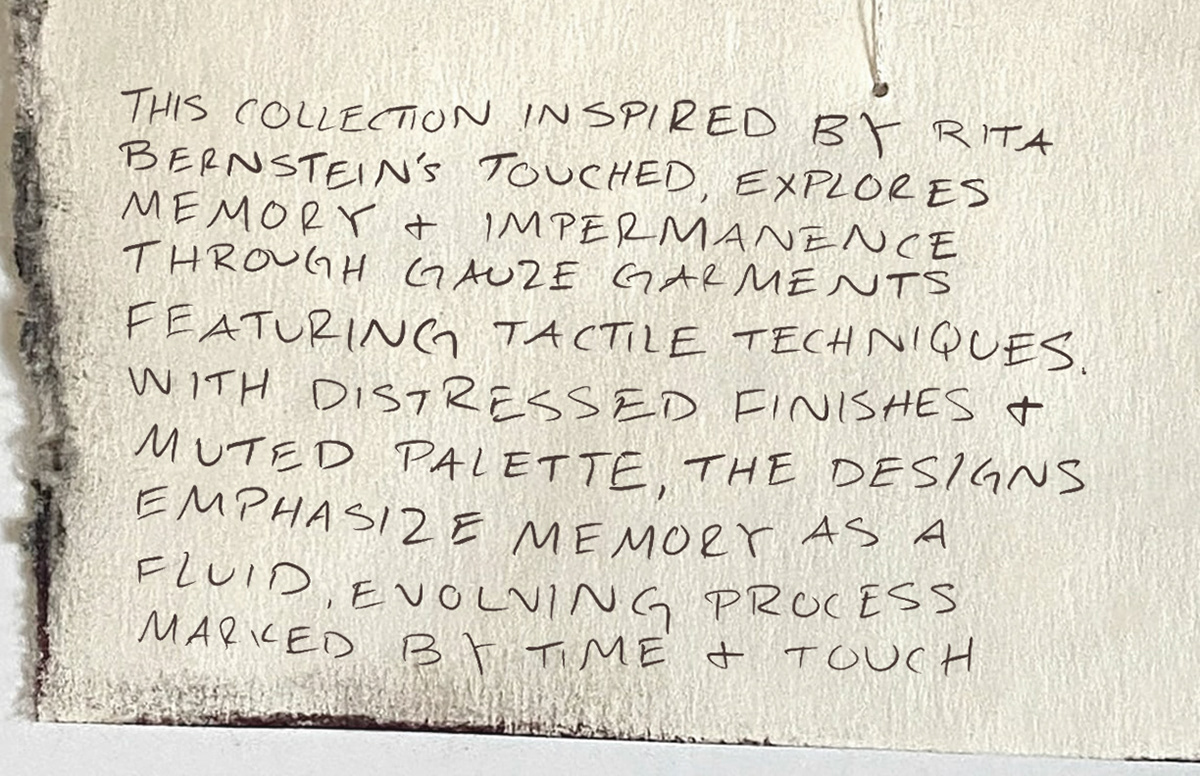 THIS COLLECTION INSPIRED BY RITA
BERNSTEIN'S TOUCHED, EXPLORES
MEMORY + IMPERMANENCE
THROUGH GAUZE GARMENTS
FEATURING TACTILE TECHNIQUES.
WITH DISTRESSED FINISHES +
MUTED PALETTE, THE DESIGNS
EMPHASIZE MEMORY AS A
FLUID, EVOLVING PROCESS
MARKED BY TIME + TOUCH